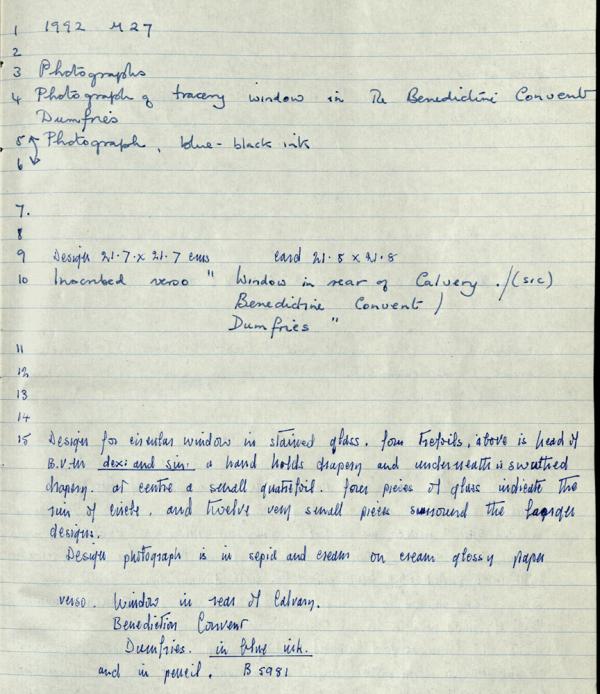 1 1992 M27
2
3 Photographs
4 Photograph of tracery window in The Benedictine Convent
Dumfries
5 Photograph, blue-black ink
6
7.
8
9 Design 21.7 x 21.7 cms card 21.8 x 21.8
10 Inscribed verso " Window in rear of Calvery ./(sic)
Benedictine Convent /
Dumfries "
11
12
13
14
15 Design for circular window in stained glass. four trefoils, above is head of
B.V.M dex: and sin: a hand holds drapery and underneath is swathed
drapery. at centre a small quatrefoil. four pieces of glass indicate the
rim of circle. and twelve very small pieces surround the larger
designs.
Design photograph is in sepia and cream on cream glossy paper
verso. Window in rear of Calvary.
Benediction Convent
Dumfries. in blue ink.
and in pencil. B 5981